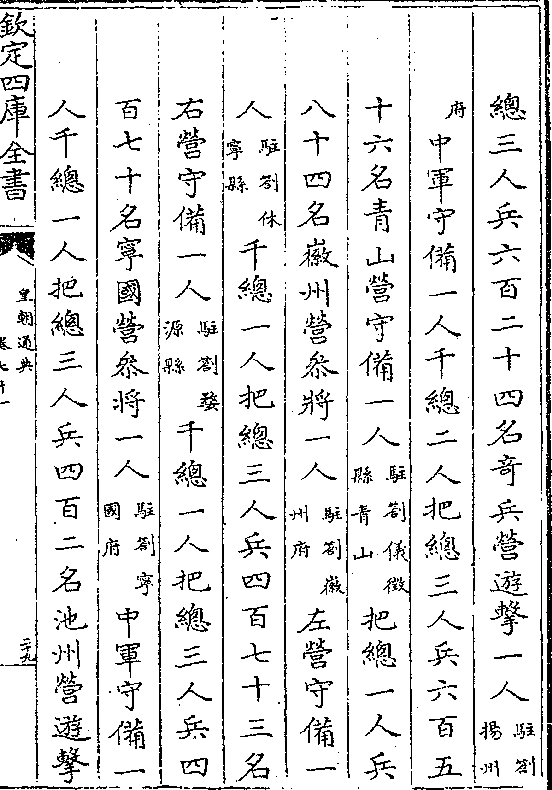 總三人兵六百二十四名奇兵營遊擊一人駐劄揚州
府中軍守備一人千總二人把總三人兵六百五
十六名青山營守備一人駐劄儀徵縣青山把總一人兵
八十四名徽州營叅將一人駐劄徽州府左營守備一
人駐劄休寧縣千總一人把總三人兵四百七十三名
右營守備一人駐劄婺源縣千總一人把總三人兵四
百七十名寧國營叅將一人駐劄寧國府中軍守備一
人千總一人把總三人兵四百二名池州營遊擊
欽定四庫全書
皇朝通典
二十九